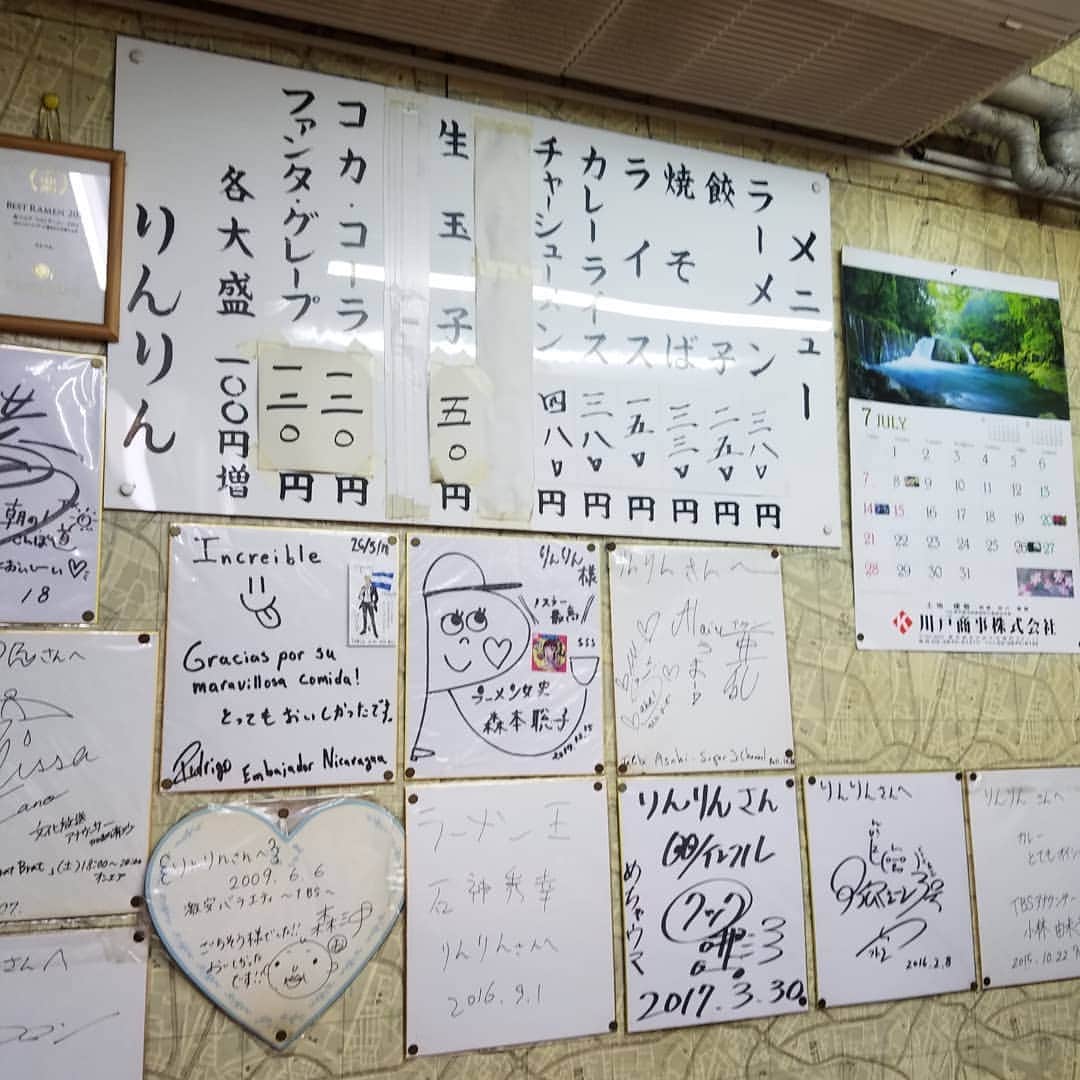 メニュー
ラーメン 三八〇円
餃子 二五〇円
焼そば 三三〇円
ライス 一五〇円
カレーライス 三八〇円
チャーシューメン 四八〇円
生玉子 五〇円
コカ・コーラ 一二〇円
ファンタ・グレープ 一二〇円
各大盛 一〇〇円増
りんりん
BEST RAMEN
7 JULY
1 2 3 4 5 6
7 8 9 10 11 12 13
14 15 16 17 18 19 20
21 22 23 24 25 26 27
28 29 30 31
川戸商事株式会社
朝の!
さんぽ道
おいひぃ♡
18
Increible
26/5/18
Gracias por su
maravillosa comida!
とってもおいしかったです。
Rodrigo Embajador Nicaragua
りんりん様
sss
ラーメン女史
森本聡子
りんりんさんへ
Alain
文化放送
アナウンサー
さんへ
りんりんさんへ
2009.6.6
激安バラエティ〜TBS〜
ごちそう様でした!!
おいしかった
です!!
森三中
ラーメン王
石神秀幸
りんりんさんへ
2016.9.1
りんりんさん
めちゃウマ
クック
2017.3.30
りんりんさんへ
2016.2.8
りんりんさんへ
カレー
TBSアナウンサー
小林由未
2015.10.22